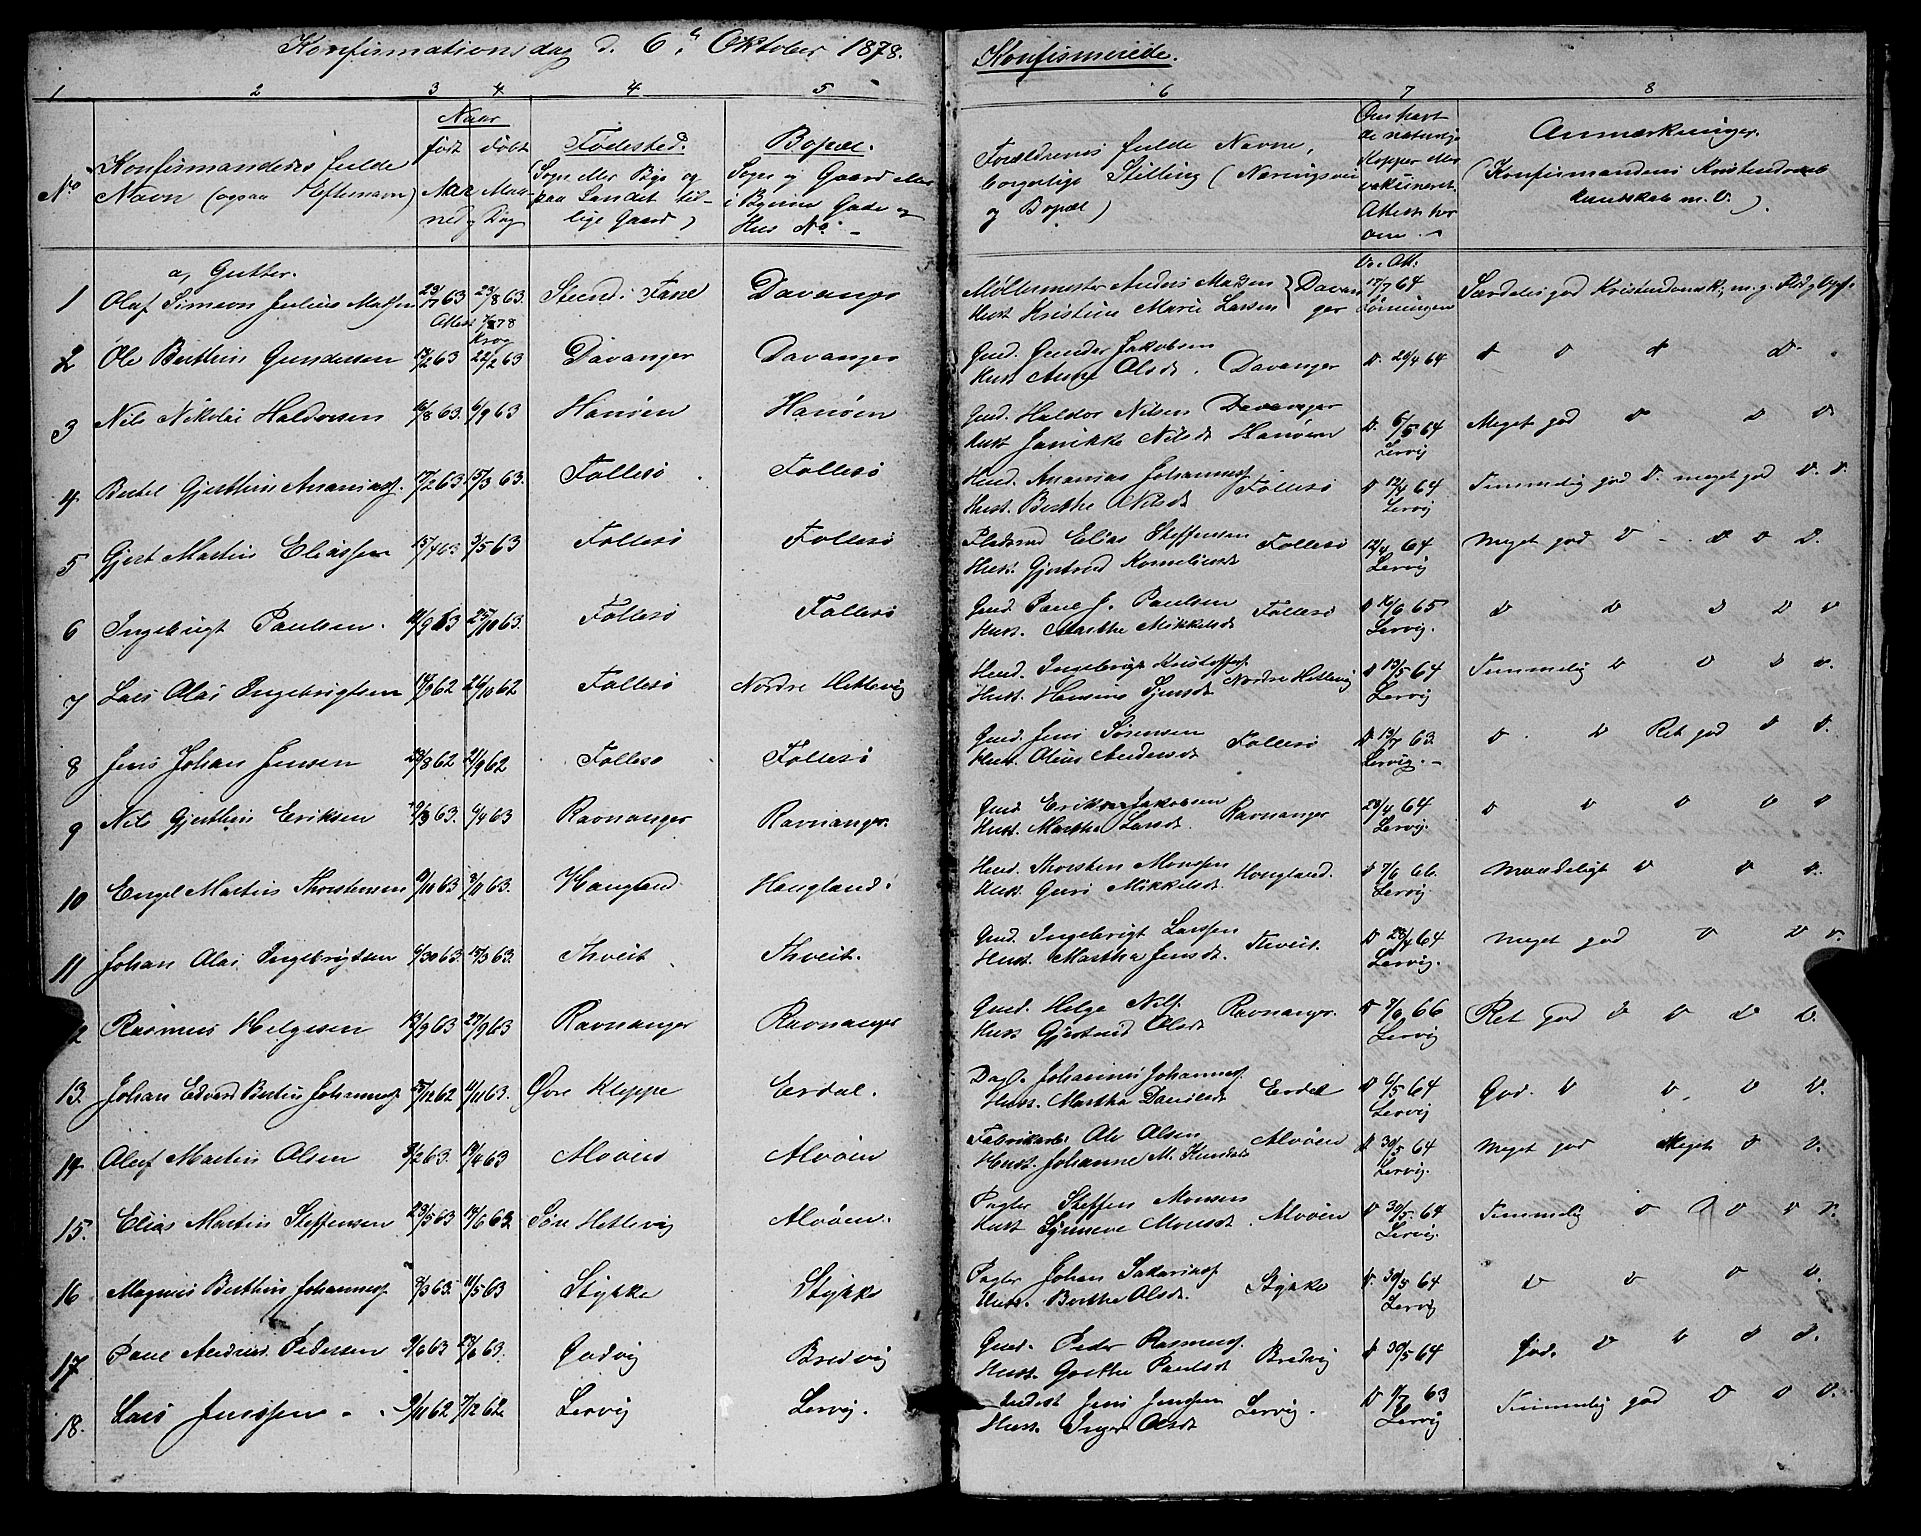 Konfirmationsdag d. 6te Oktober 1878.
Konfirmerede.
1 2 3 4 4 5 6 7 8
No Konfirmandens fulde Navn (ogsaa Efternavn)
Naar
født døbt
Aar Maaned og Dag
Fødested.
(Sogn eller By og paa Landet tillige Gaard)
Bopæl.
Sogn og Gaard eller i Byerne Gade og Hus No.
Forældrenes fulde Navne, borgerlige Stilling (Næringsvei og Bopæl)
Om havt de naturlige Kopper eller vakcineret. Attest her om.
Anmærkninger.
(Konfirmandens Kristendomskundskab m. V.)
a, Gutter.
1 Olaf Simeon Julius Madsen 23/7 63 23/8 63. Sund i Fane Davanger Møllemester Anders Madsen Hust Kristine Marie Larsen } Davanger Vac. Att. 17/7 64 Særdeles god Kristendomsk; m. g.
Attest
2 Ole Berthin Gundersen 17/2 63 22/2 63 Davanger Davanger Gmd. Gunder Jakobsen Hust Anne Olsdt. Davanger D. 29/4 64 D D D D.
3 Nils Nikolai Haldorsen 16/8 63. 6/9 63 Hanøen Hanøen Gmd. Haldor Nilsen Davanger Hust Jannikke Nilsdt Hanøen D. 6/5 64 Lervig Meget god D D D
4. Bertel Gjerthin Ananiass. 17/2 63. 15/3 63. Follesø Follesø Hmd. Ananias Johanness. Hust. Berthe Nilsdt Follesø D 12/4 64 Lervig Temmelig god D. meget god D. D.
5 Gjert Martin Eliassen 15/4 63 3/5 63 Follesø Follesø Pladsmd Elias Steffensen Hust. Gjertrud Korneliusdt Follesø 12/4 64 Lervig Meget god D D D D.
6 Ingebrigt Paulsen. 11/9 63 25/10 63. Follesø Follesø Gmd. Paul J. Paulsen Hust. Marthe Mikkelsdt Follesø D 16/6 65 Lervig. D D D D D
7 Lars Olai Ingebrigtsen 14/9 62 26/10 62 Follesø Nordre Hettevig Hmd. Ingebrigt Kristoffers. Hust. Hansine Jensdt Nordre Hettevig D 13/5 64 Lervig Temmelig D D D D.
8 Jens Johan Jensen 23/8 62 21/9 62 Follesø Follesø Gmd. Jens Sørensen Hust. Oline Andersdt Follesø D 13/7 63. Lervig. D D Ret god D D.
9 Nils Gjerthin Eriksen 9/3 63. 6/4 63 Ravnanger Ravnanger. Gmd. Erik Jakobsen Hust. Martha Larsdt. Ravnanger 23/4 64 Lervig. D D D D D
10 Engel Martin Thorstensen 9/10 63 8/11 63. Haugland Haugland. Hmd. Thorsten Monssen Hust. Guri Mikkelsdt Hougland. D 7/6 66. Lervig. Maadeligt D D D.
11 Johan Olai Ingebrigtsen 15/3 63. Thveit Thveit. Gmd. Ingebrigt Larssen Hust. Martha Jensdt. Thveit. D 23/4 64 Lervig. Meget god D D D.
12 Rasmus Helgesen 12/9 63 27/9 63 Ravnanger Ravnanger Gmd. Helge Nils. Hust Gjertrud Olsdt Ravnanger. D 7/6 66 Lervig Ret god D D D D.
13. Johan Edvard Bertin Johanness. 25/12 62 11/1 63. Øvre Kleppe Erdal. Dagl. Johannes Johanness. Hust. Martha Danielsdt Erdal D 6/5 64 Lervig God. D D. D D.
14 Oluf Martin Olsen 3/2 63. 19/4 63 Alvøen Alvøen Fabrikarb. Ole Olsen Hust. Johanne M. Knudsdt Alvøen D 30/5 64 Lervig. Meget god Meget D D.
15. Elias Martin Steffensen 23/5 63 14/6 63. Søn Hettevig Alvøen. Pagter Steffen Monsen Hust Synneve Monsdt. Alvøen D 30/5 64 Lervig. Temmelig D D D D.
16 Magnus Berthin Johanness. 8/3 63. 11/5 63 Stykke Stykke Pagter Johan Sakarias. Hust. Berthe Olsdt. Stykke D. 30/5 64 Lervig D D D D.
17 Paul Andreas Pedersen 9/6 63 28/6 63. Godvig Bredvig Gmd. Peder Rasmuss. Hust. Gjertha Paulsdt Bredvig D 30/5 64 God. D D D D.
18. Lars Jenssen 9/11 62 7/12 62 Lervig Lervig. Jens Jenssen Hust. Inger Olsdt Lervig. D 7/7 63 Lervig Temmelig god D D D.